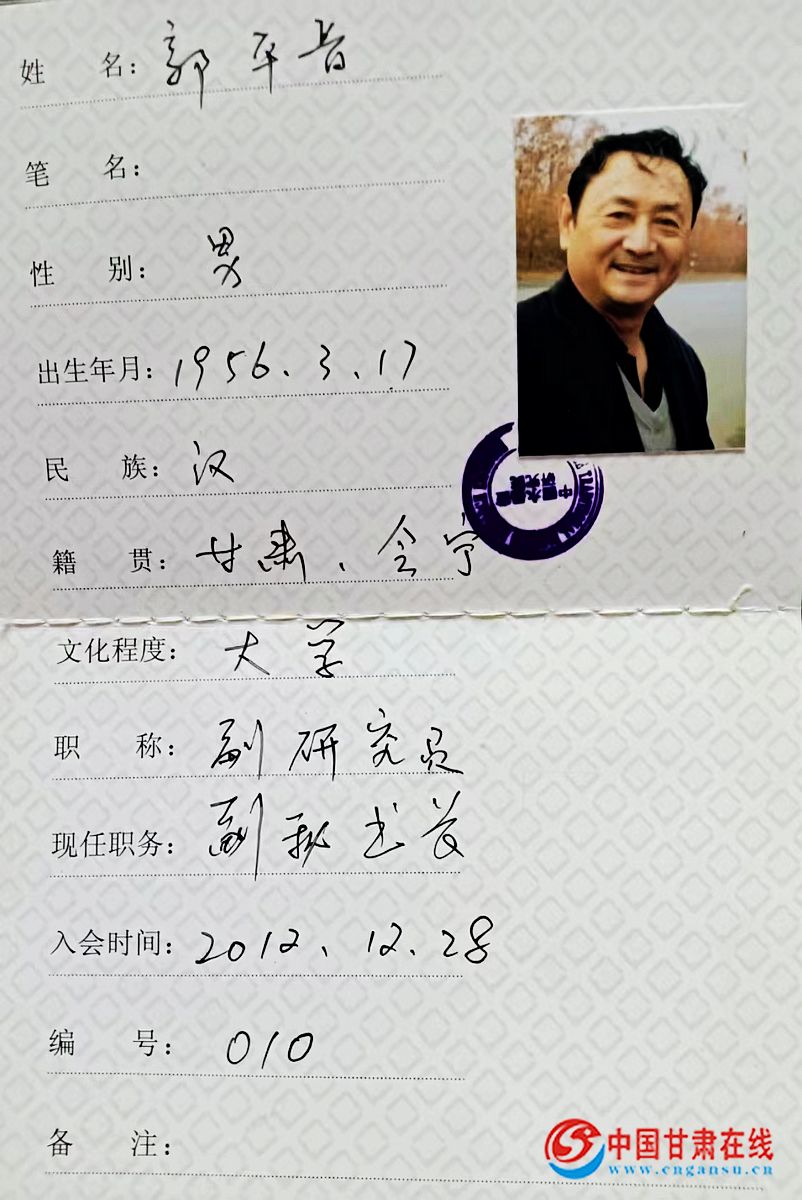 姓 名: 郭平昔
笔 名:
性 别: 男
出生年月: 1956.3.17
民 族: 汉
籍 贯: 甘肃、会宁
文化程度: 大学
职 称: 副研究员
现任职务: 副秘书长
入会时间: 2012、12.28
编 号: 010
备 注:
中国甘肃在线
www.cngansu.cn